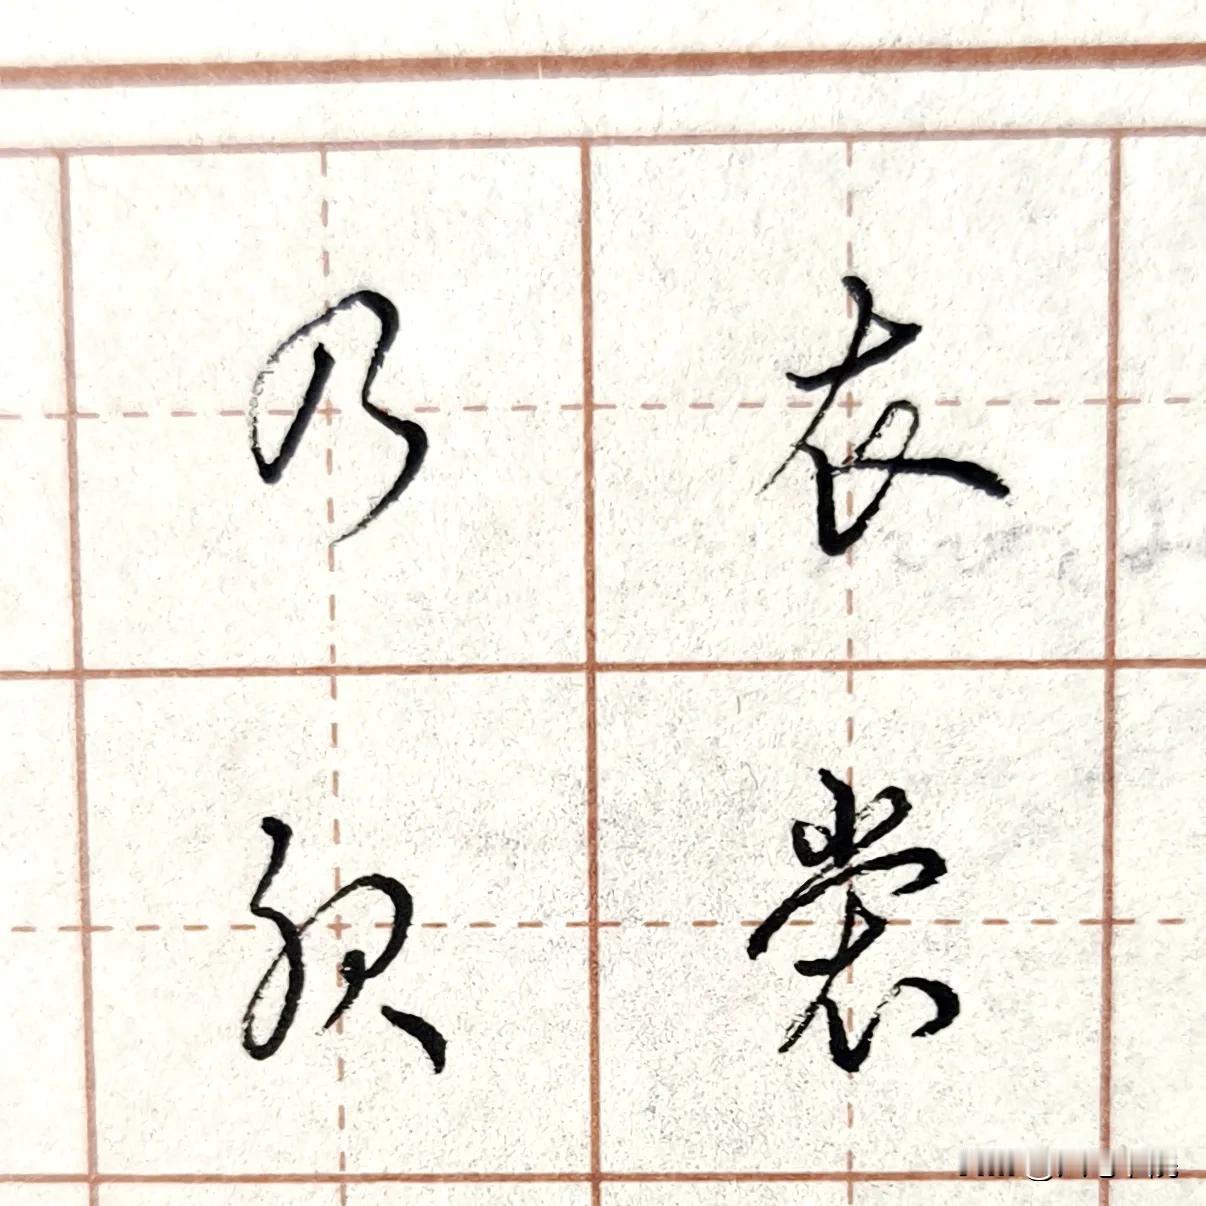 乃服
衣裳